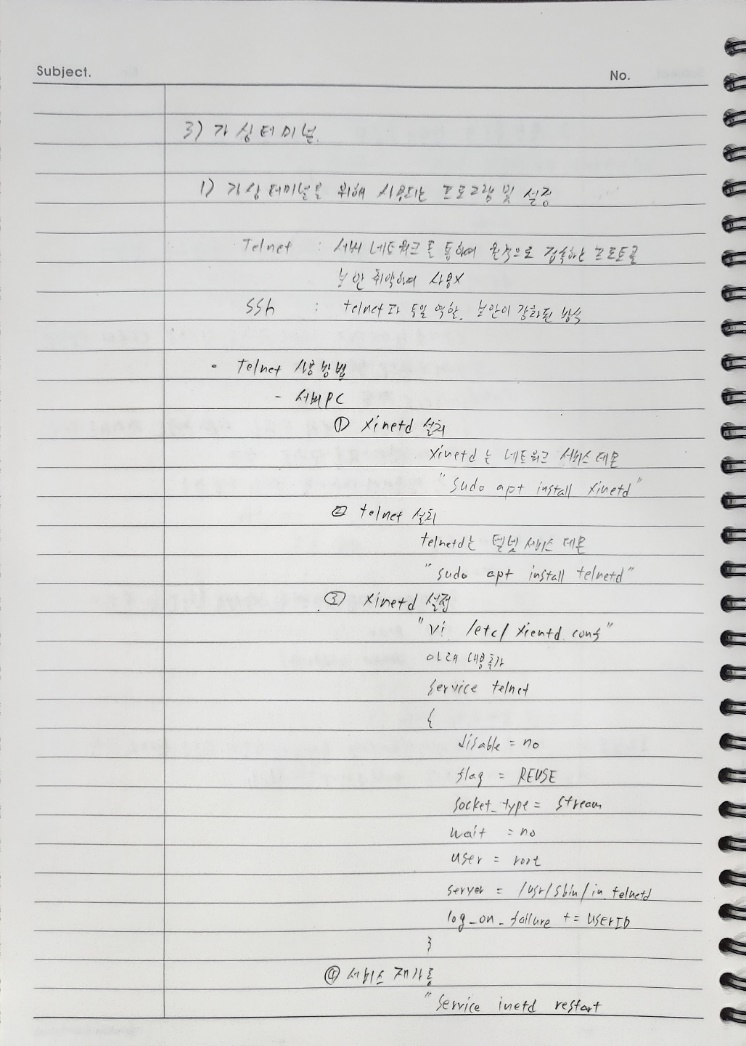 Subject.
No.
3) 가상터미널.
1) 가상터미널을 위해 사용되는 프로그램 및 설정
Telnet : 서버 네트워크를 통하여 원격으로 접속하는 프로토콜
보안 취약하여 사용X
SSh : telnet과 동일 역할. 보안이 강화된 방식
• Telnet 사용방법
- 서버PC
① Xinetd 설치
Xinetd는 네트워크 서비스 데몬
"Sudo apt install Xinetd"
② telnet 설치
telnetd는 텔넷 서비스 데몬
"Sudo apt install telnetd"
③ Xinetd 설정
"Vi /etc/xientd.conf"
아래 내용추가
Service telnet
{
disable = no
flag = REUSE
Socket_type = Stream
Wait = no
User = root
server = /usr/sbin/in.telnetd
log_on_failure += USERID
}
④ 서비스 재가동
"Service inetd restart